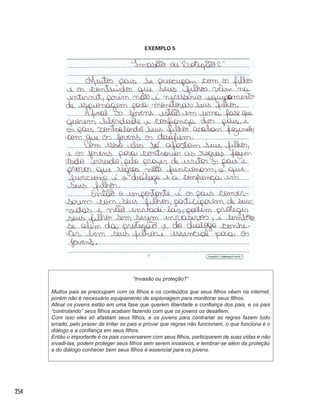 EXEMPLO 5
"Invasão ou Proteção?"
Muitos pais se preocupam com os filhos
e os conteúdos que seus filhos veem na
internet, porém não é necessário equipamento
de espionagem para monitorar seus filhos.
Afinal os jovens estão em uma fase que
querem liberdade e confiança dos pais, e
os pais controlando seus filhos acabam fazendo
com que os jovens os desafiem.
Com isso eles só afastam seus filhos,
e os jovens para contrariar as regras fazem
tudo errado, pelo prazer de irritar os pais e
provar que regras não funcionam, o que
funciona é o diálogo e a confiança em
seus filhos.
Então o importante é os pais conver-
sarem com seus filhos, participarem de suas
vidas e não invadi-las, podem proteger
seus filhos sem serem invasivos, e lembrar-
se além da proteção e do diálogo conhe-
cer bem seus filhos é essencial para os
jovens.
"Invasão ou proteção?"
Muitos pais se preocupam com os filhos e os conteúdos que seus filhos vêem na internet,
porém não é necessário equipamento de espionagem para monitorar seus filhos.
Afinal os jovens estão em uma fase que querem liberdade e confiança dos pais, e os pais
"controlando" seus filhos acabam fazendo com que os jovens os desafiem.
Com isso eles só afastam seus filhos, e os jovens para contrariar as regras fazem tudo
errado, pelo prazer de irritar os pais e provar que regras não funcionam, o que funciona é o
diálogo e a confiança em seus filhos.
Então o importante é os pais conversarem com seus filhos, participarem de suas vidas e não
invadi-las, podem proteger seus filhos sem serem invasivos, e lembrar-se além da proteção
e do diálogo conhecer bem seus filhos é essencial para os jovens.
254